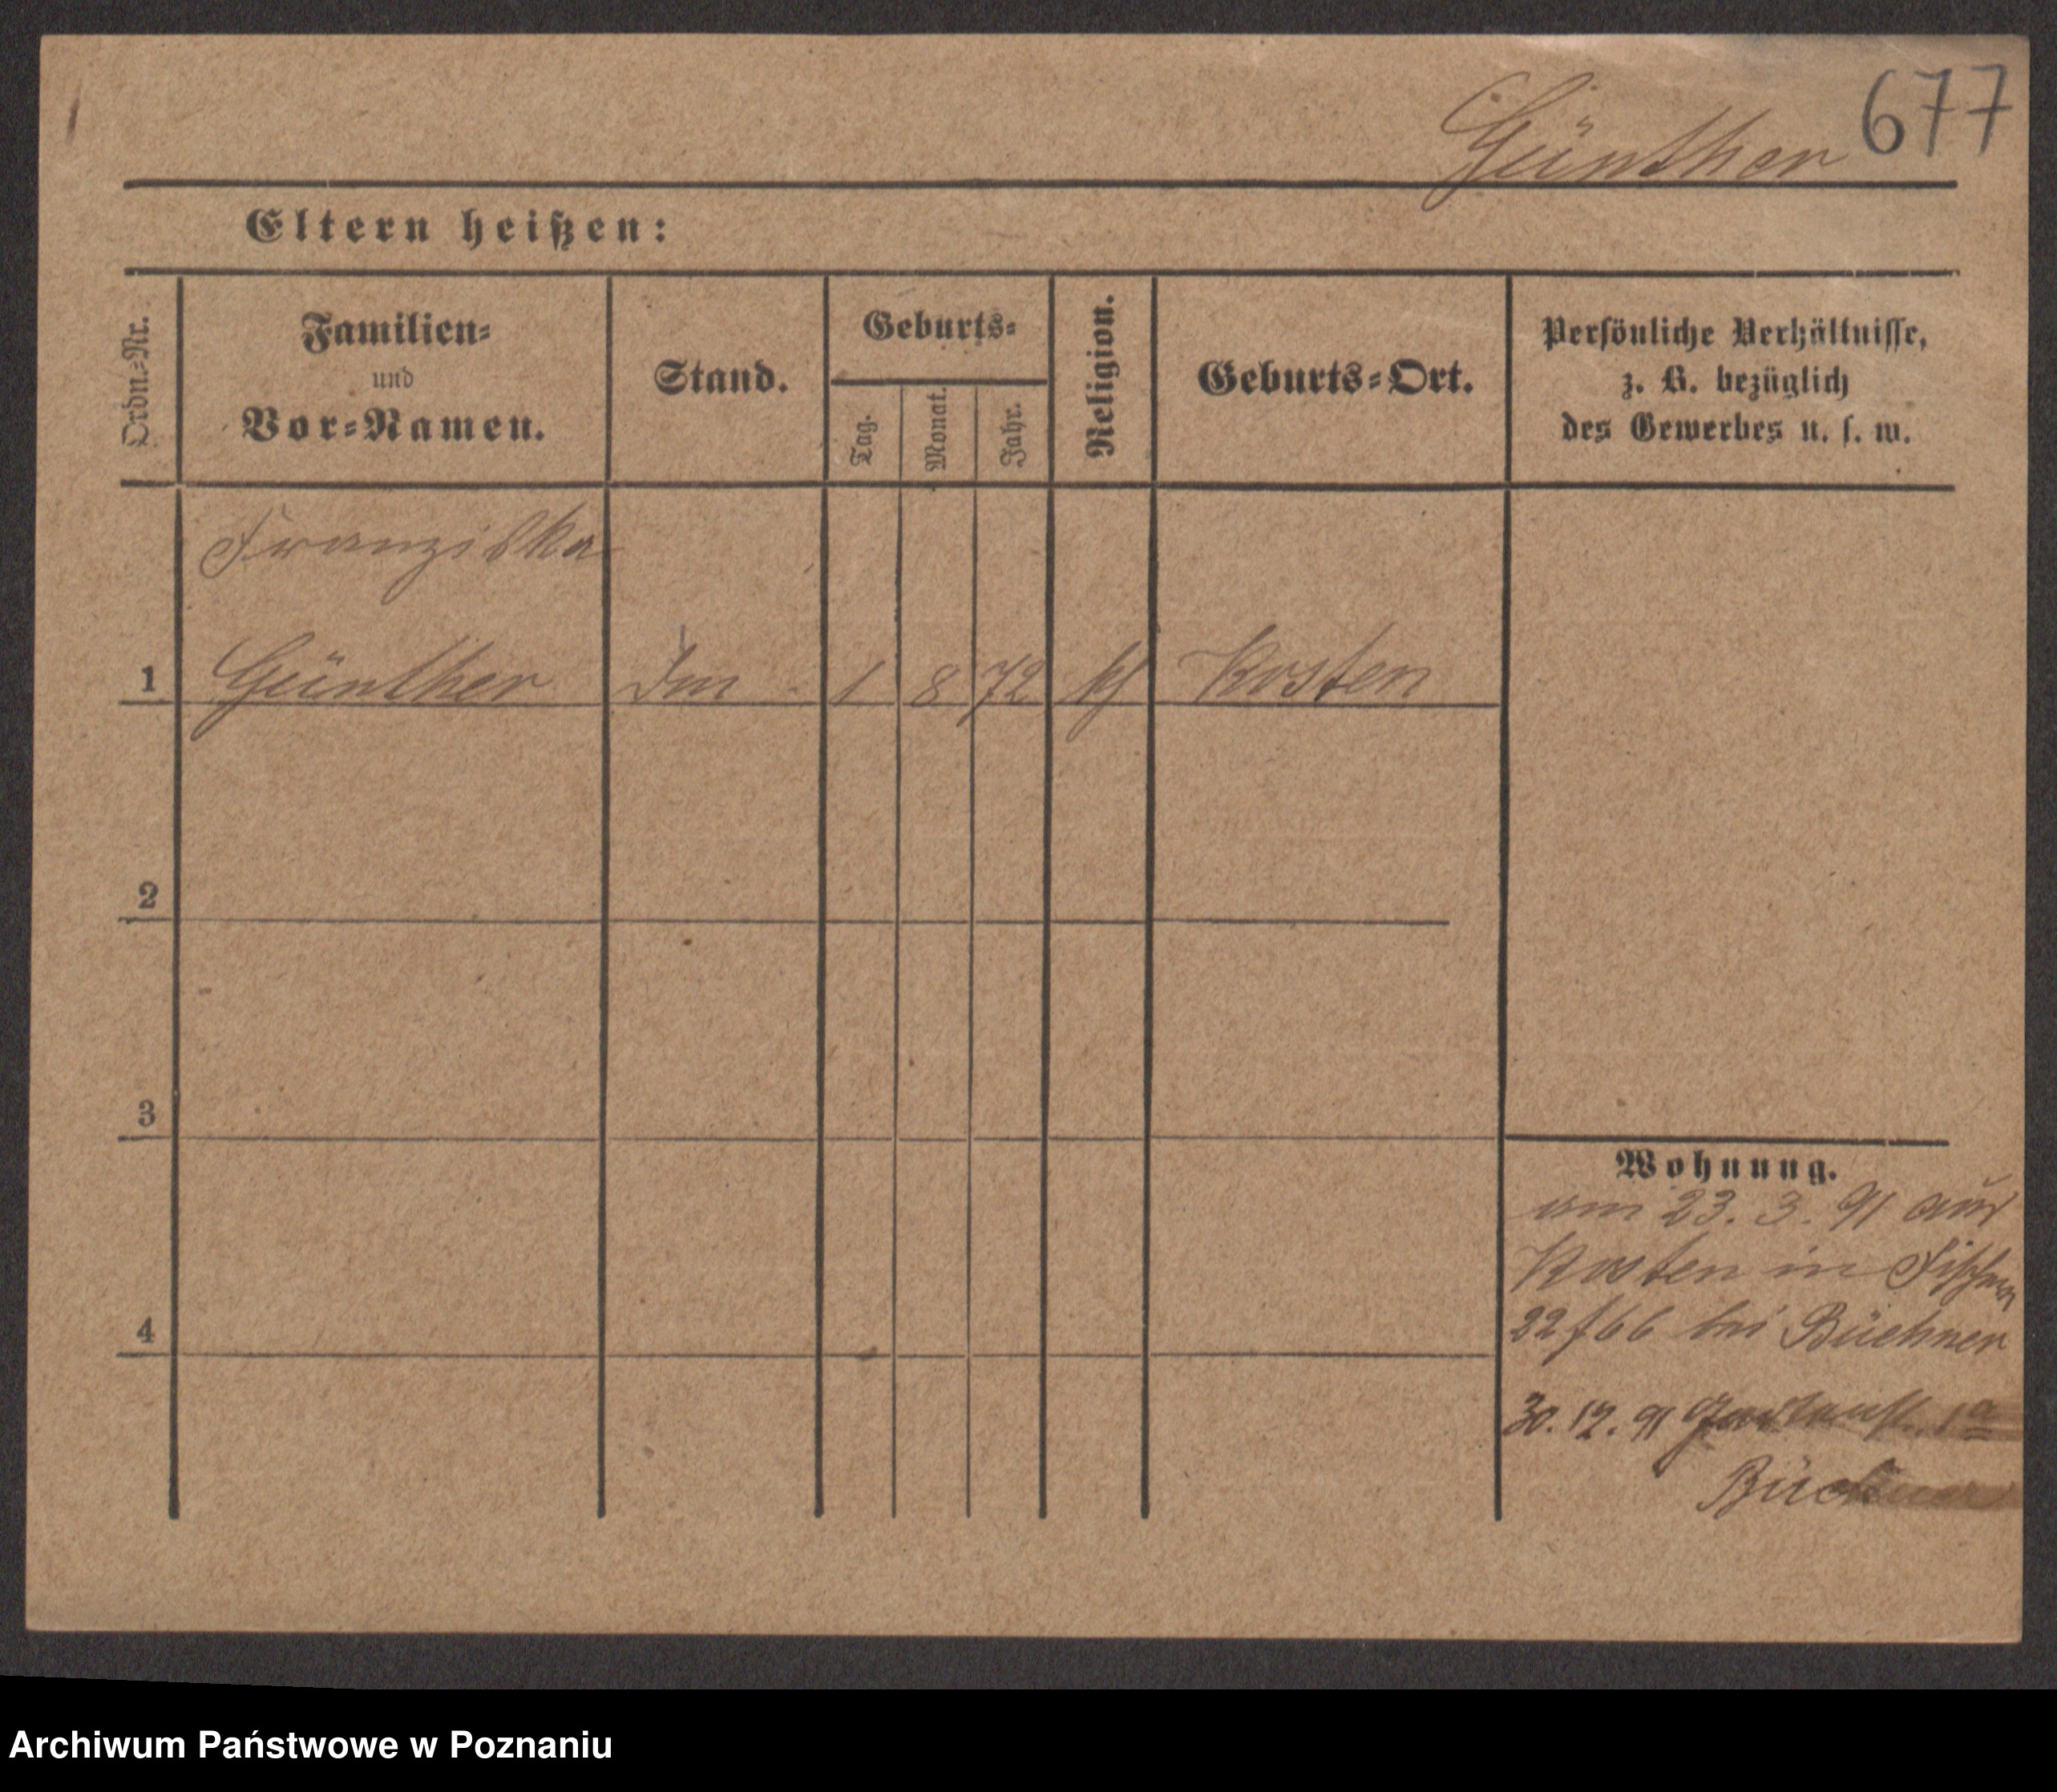 Günther 677
Eltern heißen:
Ordn.-Nr.
Familien-
und
Vor-Namen.
Stand.
Geburts-
Tag.
Monat.
Jahr.
Religion.
Geburts-Ort.
Persönliche Verhältnisse,
z. B. bezüglich
des Gewerbes u. s. w.
Franziska
1 Günther 1 8 72 Kosten
2
3
4
Wohnung.
am 23. 3. 91 aus
Kosten in
22/66 bei Büchner
30. 12. 91 1a
Büchner
Archiwum Państwowe w Poznaniu